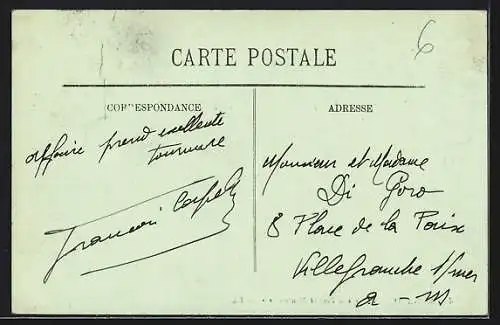 6
CARTE POSTALE
CORRESPONDANCE
ADRESSE
Affaire prend excellente
tournure
Monsieur et Madame
Di Goro
8 Place de la Paix
Villefranche s/mer
a - m